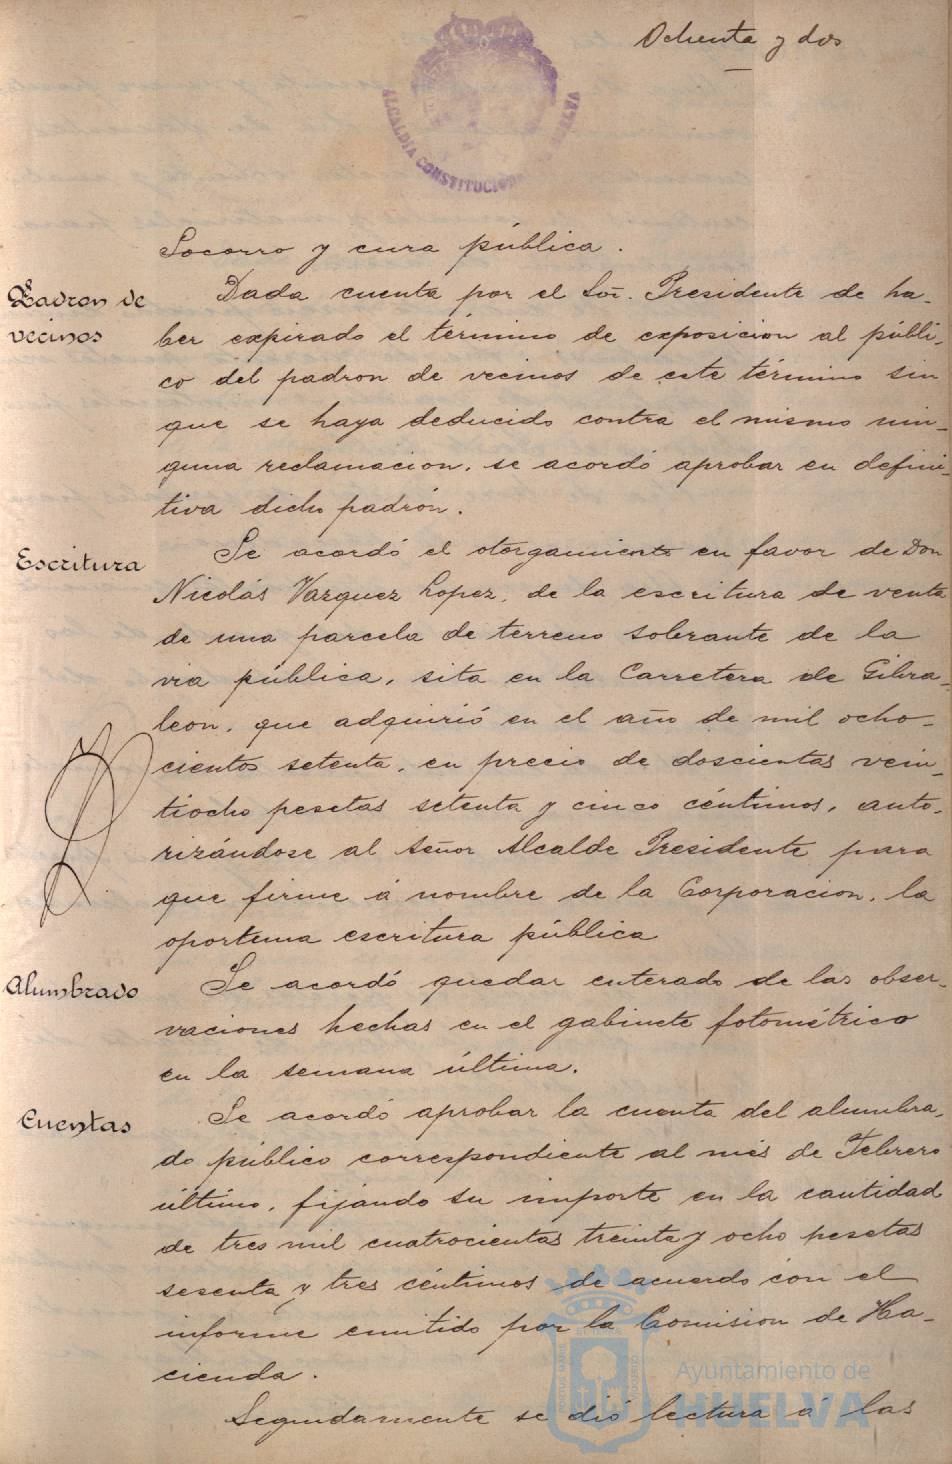 Ochenta y dos
ALCALDIA CONSTITUCIONAL
HUELVA
Socorro y cura pública.
Padron de
vecinos
Dada cuenta por el Sor. Presidente de ha-
ber expirado el término de exposicion al públi-
co del padron de vecinos de este término sin
que se haya deducido contra el mismo nin-
guna reclamacion, se acordó aprobar en defini-
tiva dicho padrón.
Escritura
Se acordó el otorgamiento en favor de Don
Nicolás Vazquez Lopez, de la escritura de venta
de una parcela de terreno sobrante de la
via pública, sita en la Carretera de Gibra-
leon, que adquirió en el año de mil ocho-
cientos setenta, en precio de doscientas vein-
tiocho pesetas setenta y cinco céntimos, auto-
rizándose al Señor Alcalde Presidente para
que firme á nombre de la Corporacion, la
oportuna escritura pública
Alumbrado
Se acordó quedar enterado de las obser-
vaciones hechas en el gabinete fotométrico
en la semana última.
Cuentas
Se acordó aprobar la cuenta del alumbra-
do público correspondiente al més de Febrero
último, fijando su importe en la cantidad
de tres mil cuatrocientas treinta y ocho pesetas
sesenta y tres céntimos de acuerdo con el
informe emitido por la Comision de Ha-
cienda.
Seguidamente se dió lectura á las
Ayuntamiento de
HUELVA